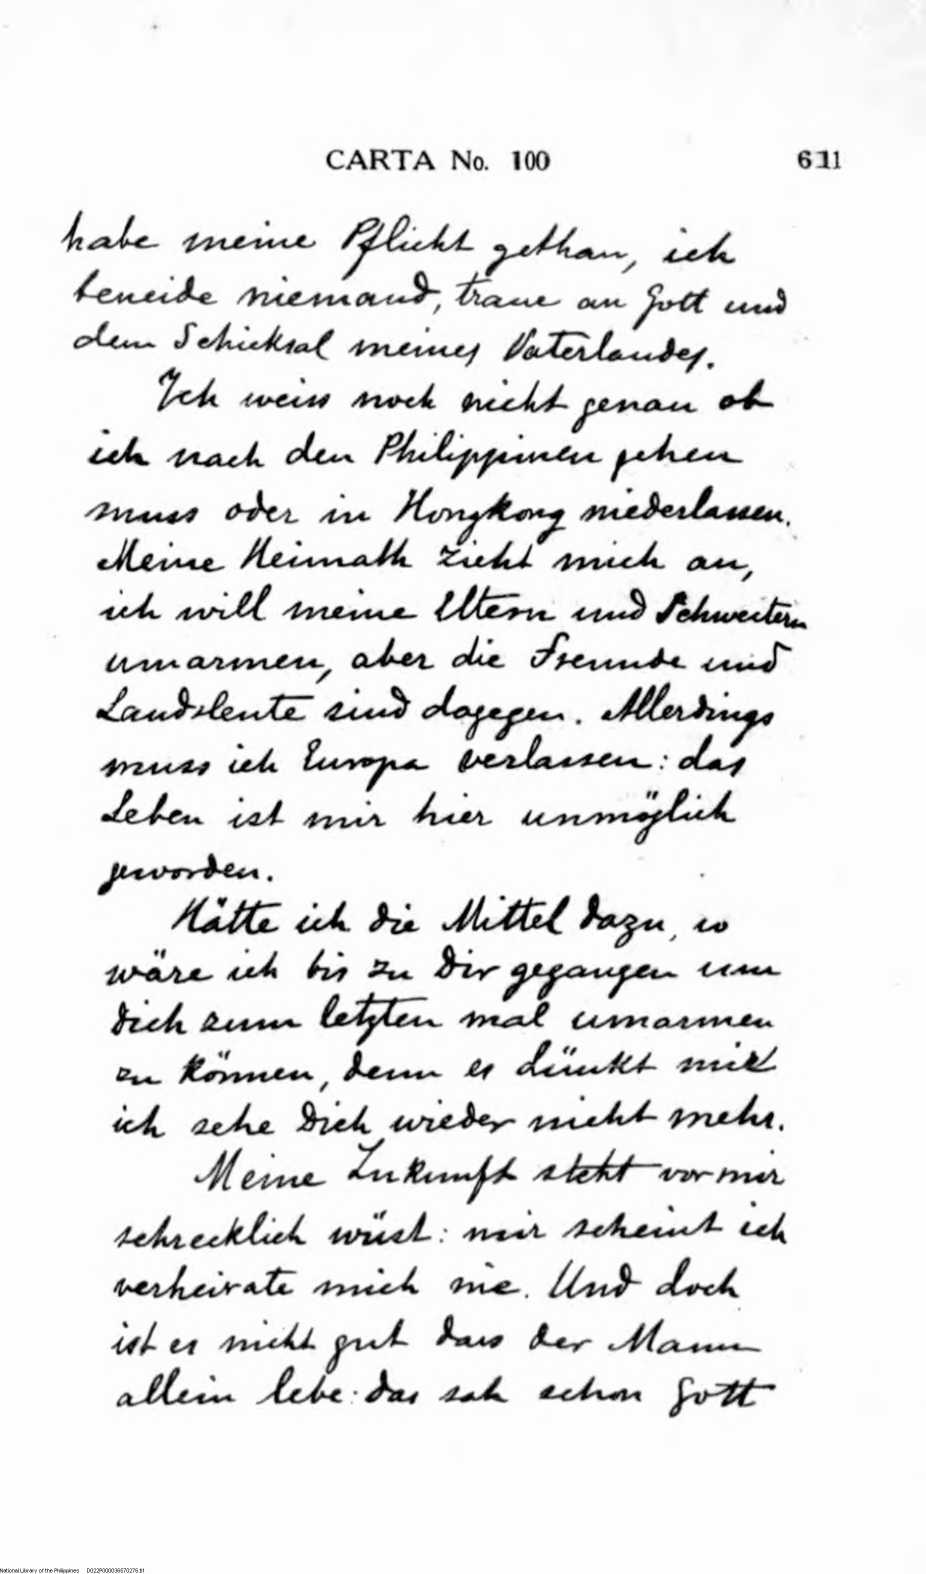 CARTA No. 100 611
habe meine Pflicht gethan, ich
beneide niemand, traue an Gott und
dem Schicksal meines Vaterlandes.
Ich weiss noch nicht genau ob
ich nach den Philippinen gehen
muss oder in Hongkong niederlassen.
Meine Heimath zieht mich an,
ich will meine Eltern und Schwestern
umarmen, aber die Freunde und
Landsleute sind dagegen. Allerdings
muss ich Europa verlassen: das
Leben ist mir hier unmöglich
geworden.
Hätte ich die Mittel dazu, so
wäre ich bis zu Dir gegangen um
Dich zum letzten mal umarmen
zu können, denn es dünkt mir
ich sehe Dich wieder nicht mehr.
Meine Zukunft steht vor mir
schrecklich wüst: mir scheint ich
verheirate mich nie. Und doch
ist es nicht gut dass der Mann
allein lebe: das sah schon Gott
National Library of the Philippines